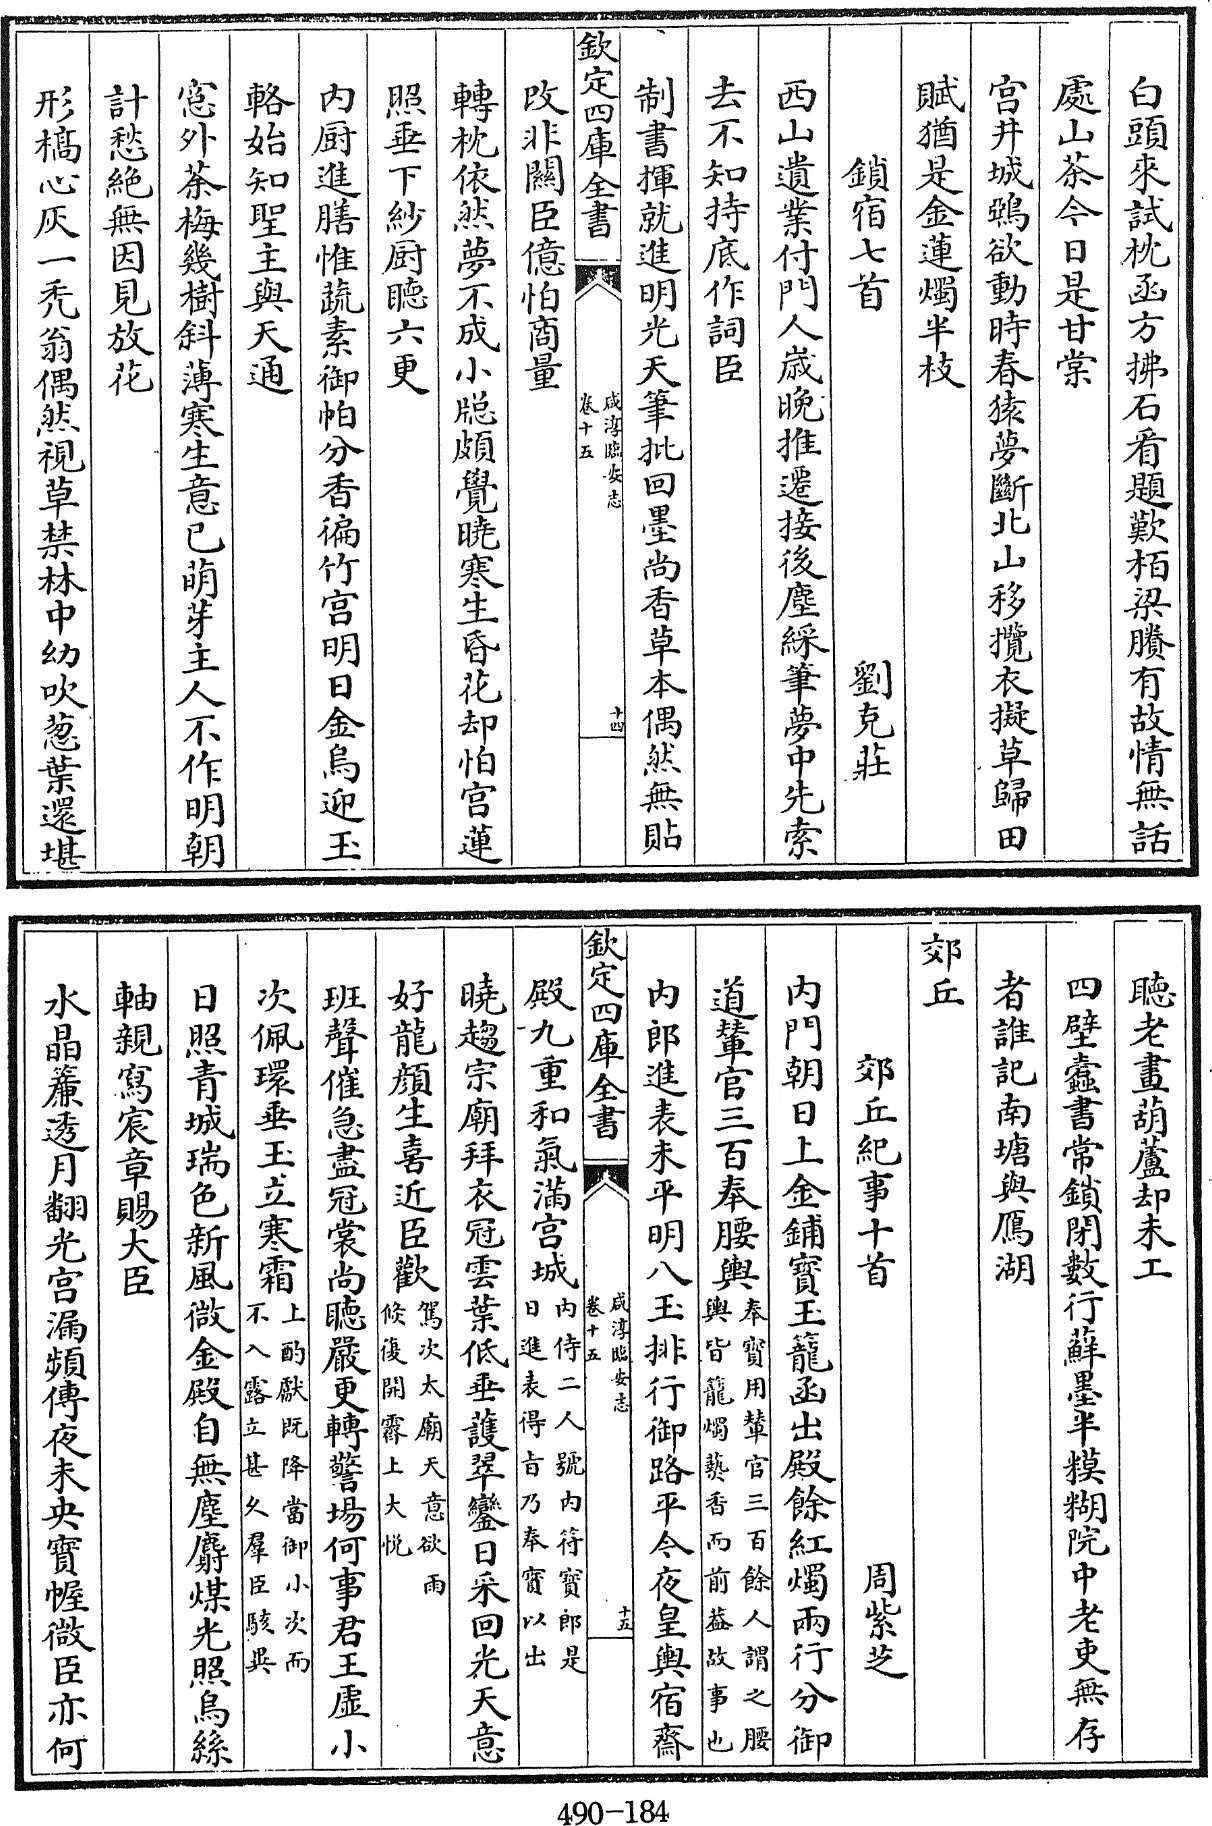 白頭來試枕函方拂石看題歎栢梁賸有故情無話
處山茶今日是甘棠
宫井城鴉欲動時春猿夢斷北山移攬衣擬草歸田
賦猶是金蓮燭半枝
鎖宿七首 劉克莊
西山遺業付門人歳晚推遷接後塵綵筆夢中先索
去不知持底作詞臣
制書揮就進明光天筆批回墨尚香草本偶然無貼
欽定四庫全書
咸淳臨安志
卷十五
十四
改非關臣億怕商量
轉枕依然夢不成小牕頗覺曉寒生昏花却怕宫蓮
照垂下紗厨聽六更
内厨進膳惟蔬素御帕分香徧竹宫明日金烏迎玉
輅始知聖主與天通
窓外茶梅幾樹斜薄寒生意已萌芽主人不作明朝
計愁絶無因見放花
形槁心灰一秃翁偶然視草禁林中幼吹葱葉還堪
聽老畫葫蘆却未工
四壁蠧書常鎖閉數行蘚墨半糢糊院中老吏無存
者誰記南塘與鴈湖
郊丘
郊丘紀事十首 周紫芝
内門朝日上金鋪寳玉籠函出殿餘紅燭兩行分御
道輦官三百奉腰輿奉寳用輦官三百餘人謂之腰
輿皆籠燭爇香而前葢故事也
内郎進表未平明八玉排行御路平今夜皇輿宿齋
欽定四庫全書
咸淳臨安志
卷十五
十五
殿九重和氣滿宫城内侍二人號内符寳郎是
日進表得㫖乃奉寳以出
曉趨宗廟拜衣冠雲葉低垂䕶翠鑾日采回光天意
好龍顔生喜近臣歡駕次太廟天意欲雨
倐復開霽上大悦
班聲催急盡冠裳尚聽嚴更轉警場何事君王虛小
次佩環垂玉立寒霜上酌獻既降當御小次而
不入露立甚久羣臣駭異
日照青城瑞色新風微金殿自無塵麝煤光照烏絲
軸親寫宸章賜大臣
水晶簾透月翻光宫漏頻傳夜未央寳幄微臣亦何
490-184